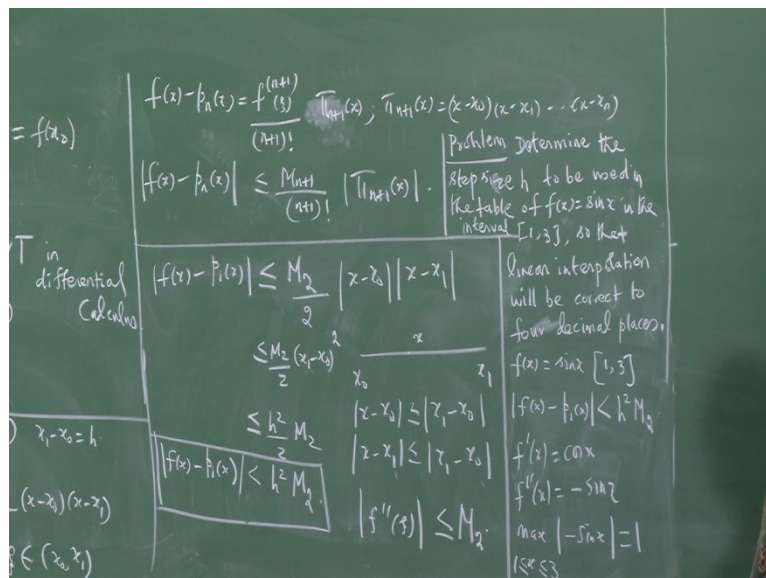 = f(x₀)
T in
differential
Calculus
) x₁-x₀=h.
(x-x₀)(x-x₁)
ξ ∈ (x₀, x₁)
f(x)-pₙ(x) = f⁽ⁿ⁺¹⁾(ξ)/(n+1)! πₙ₊₁(x), πₙ₊₁(x)=(x-x₀)(x-x₁)--(x-xₙ)
|f(x)-pₙ(x)| ≤ Mₙ₊₁/(n+1)! |πₙ₊₁(x)|.
|f(x)-p₁(x)| ≤ M₂/2 |x-x₀||x-x₁|
≤ M₂/2 (x₁-x₀)²
x
x₀ x₁
≤ h²/2 M₂
|f(x)-p₁(x)| < h² M₂.
|x-x₀| ≤ |x₁-x₀|
|x-x₁| ≤ |x₁-x₀|
|f''(ξ)| ≤ M₂.
Problem Determine the
step size h to be used in
the table of f(x)=sinx in the
interval [1,3], so that
linear interpolation
will be correct to
four decimal places.
f(x)=sinx [1,3]
|f(x)-p₁(x)|<h²M₂
f'(x)=cosx
f''(x)=-sinx
max |-sinx|=1
1≤x≤3